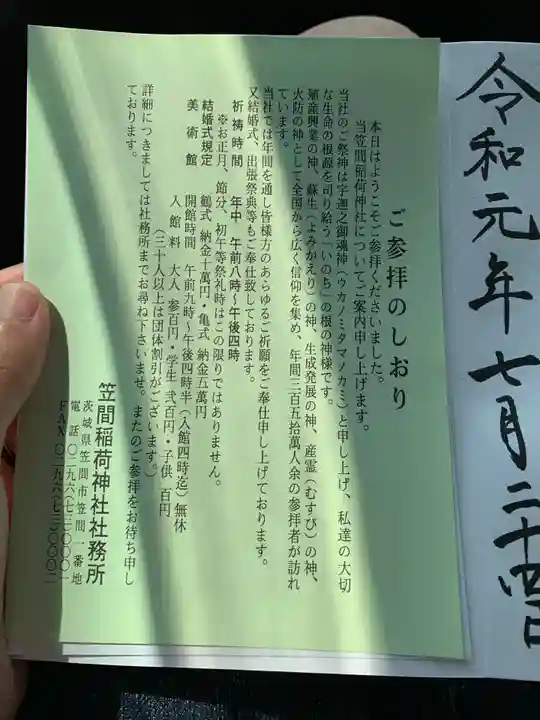 令和元年七月二十四日
ご参拝のしおり
本日はようこそご参拝くださいました。
当笠間稲荷神社についてご案内申し上げます。
当社のご祭神は宇迦之御魂神(ウカノミタマノカミ)と申し上げ、私達の大切
な生命の根源を司り給う「いのち」の根の神様です。
殖産興業の神、蘇生(よみかえり)の神、生成発展の神、産霊(むすび)の神、
火防の神として全国から広く信仰を集め、年間三百五拾萬人余の参拝者が訪れ
ています。
当社では年間を通し皆様方のあらゆるご祈願をご奉仕申し上げております。
又結婚式、出張祭典等もご奉仕致しております。
祈祷時間 年中 午前八時〜午後四時
※お正月、節分、初午等祭礼時はこの限りではありません。
結婚式規定 鶴式 納金十萬円・亀式 納金五萬円
美術館 開館時間 午前九時〜午後四時半(入館四時迄)無休
入館料 大人 参百円・学生 弐百円・子供 百円
(三十人以上は団体割引がございます。)
詳細につきましては社務所までお尋ね下さいませ。またのご参拝をお待ち申し
ております。
笠間稲荷神社社務所
茨城県笠間市笠間一番地
電話〇二九六(七三)〇〇〇一
FAX〇二九六(七三)〇〇〇二